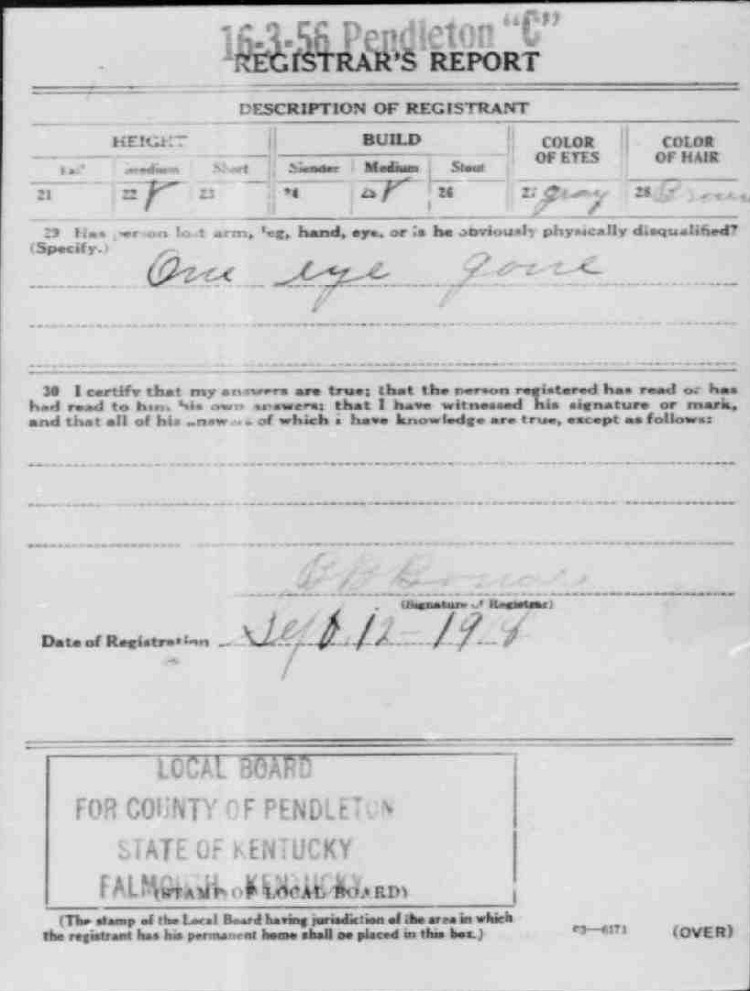 16-3-56 Pendleton "C"
REGISTRAR'S REPORT
DESCRIPTION OF REGISTRANT
HEIGHT BUILD COLOR OF EYES COLOR OF HAIR
Tall Medium Short Slender Medium Stout
21 22 ✓ 23 24 25 ✓ 26 27 gray 28 Brown
29 Has person lost arm, leg, hand, eye, or is he obviously physically disqualified?
(Specify.)
One eye gone
30 I certify that my answers are true; that the person registered has read or has
had read to him his own answers; that I have witnessed his signature or mark,
and that all of his answers of which I have knowledge are true, except as follows:
(Signature of Registrar)
Date of Registration Sept. 12 - 1918
LOCAL BOARD
FOR COUNTY OF PENDLETON
STATE OF KENTUCKY
FALMOUTH, KENTUCKY
(STAMP OF LOCAL BOARD)
(The stamp of the Local Board having jurisdiction of the area in which
the registrant has his permanent home shall be placed in this box.)
03—6171 (OVER)